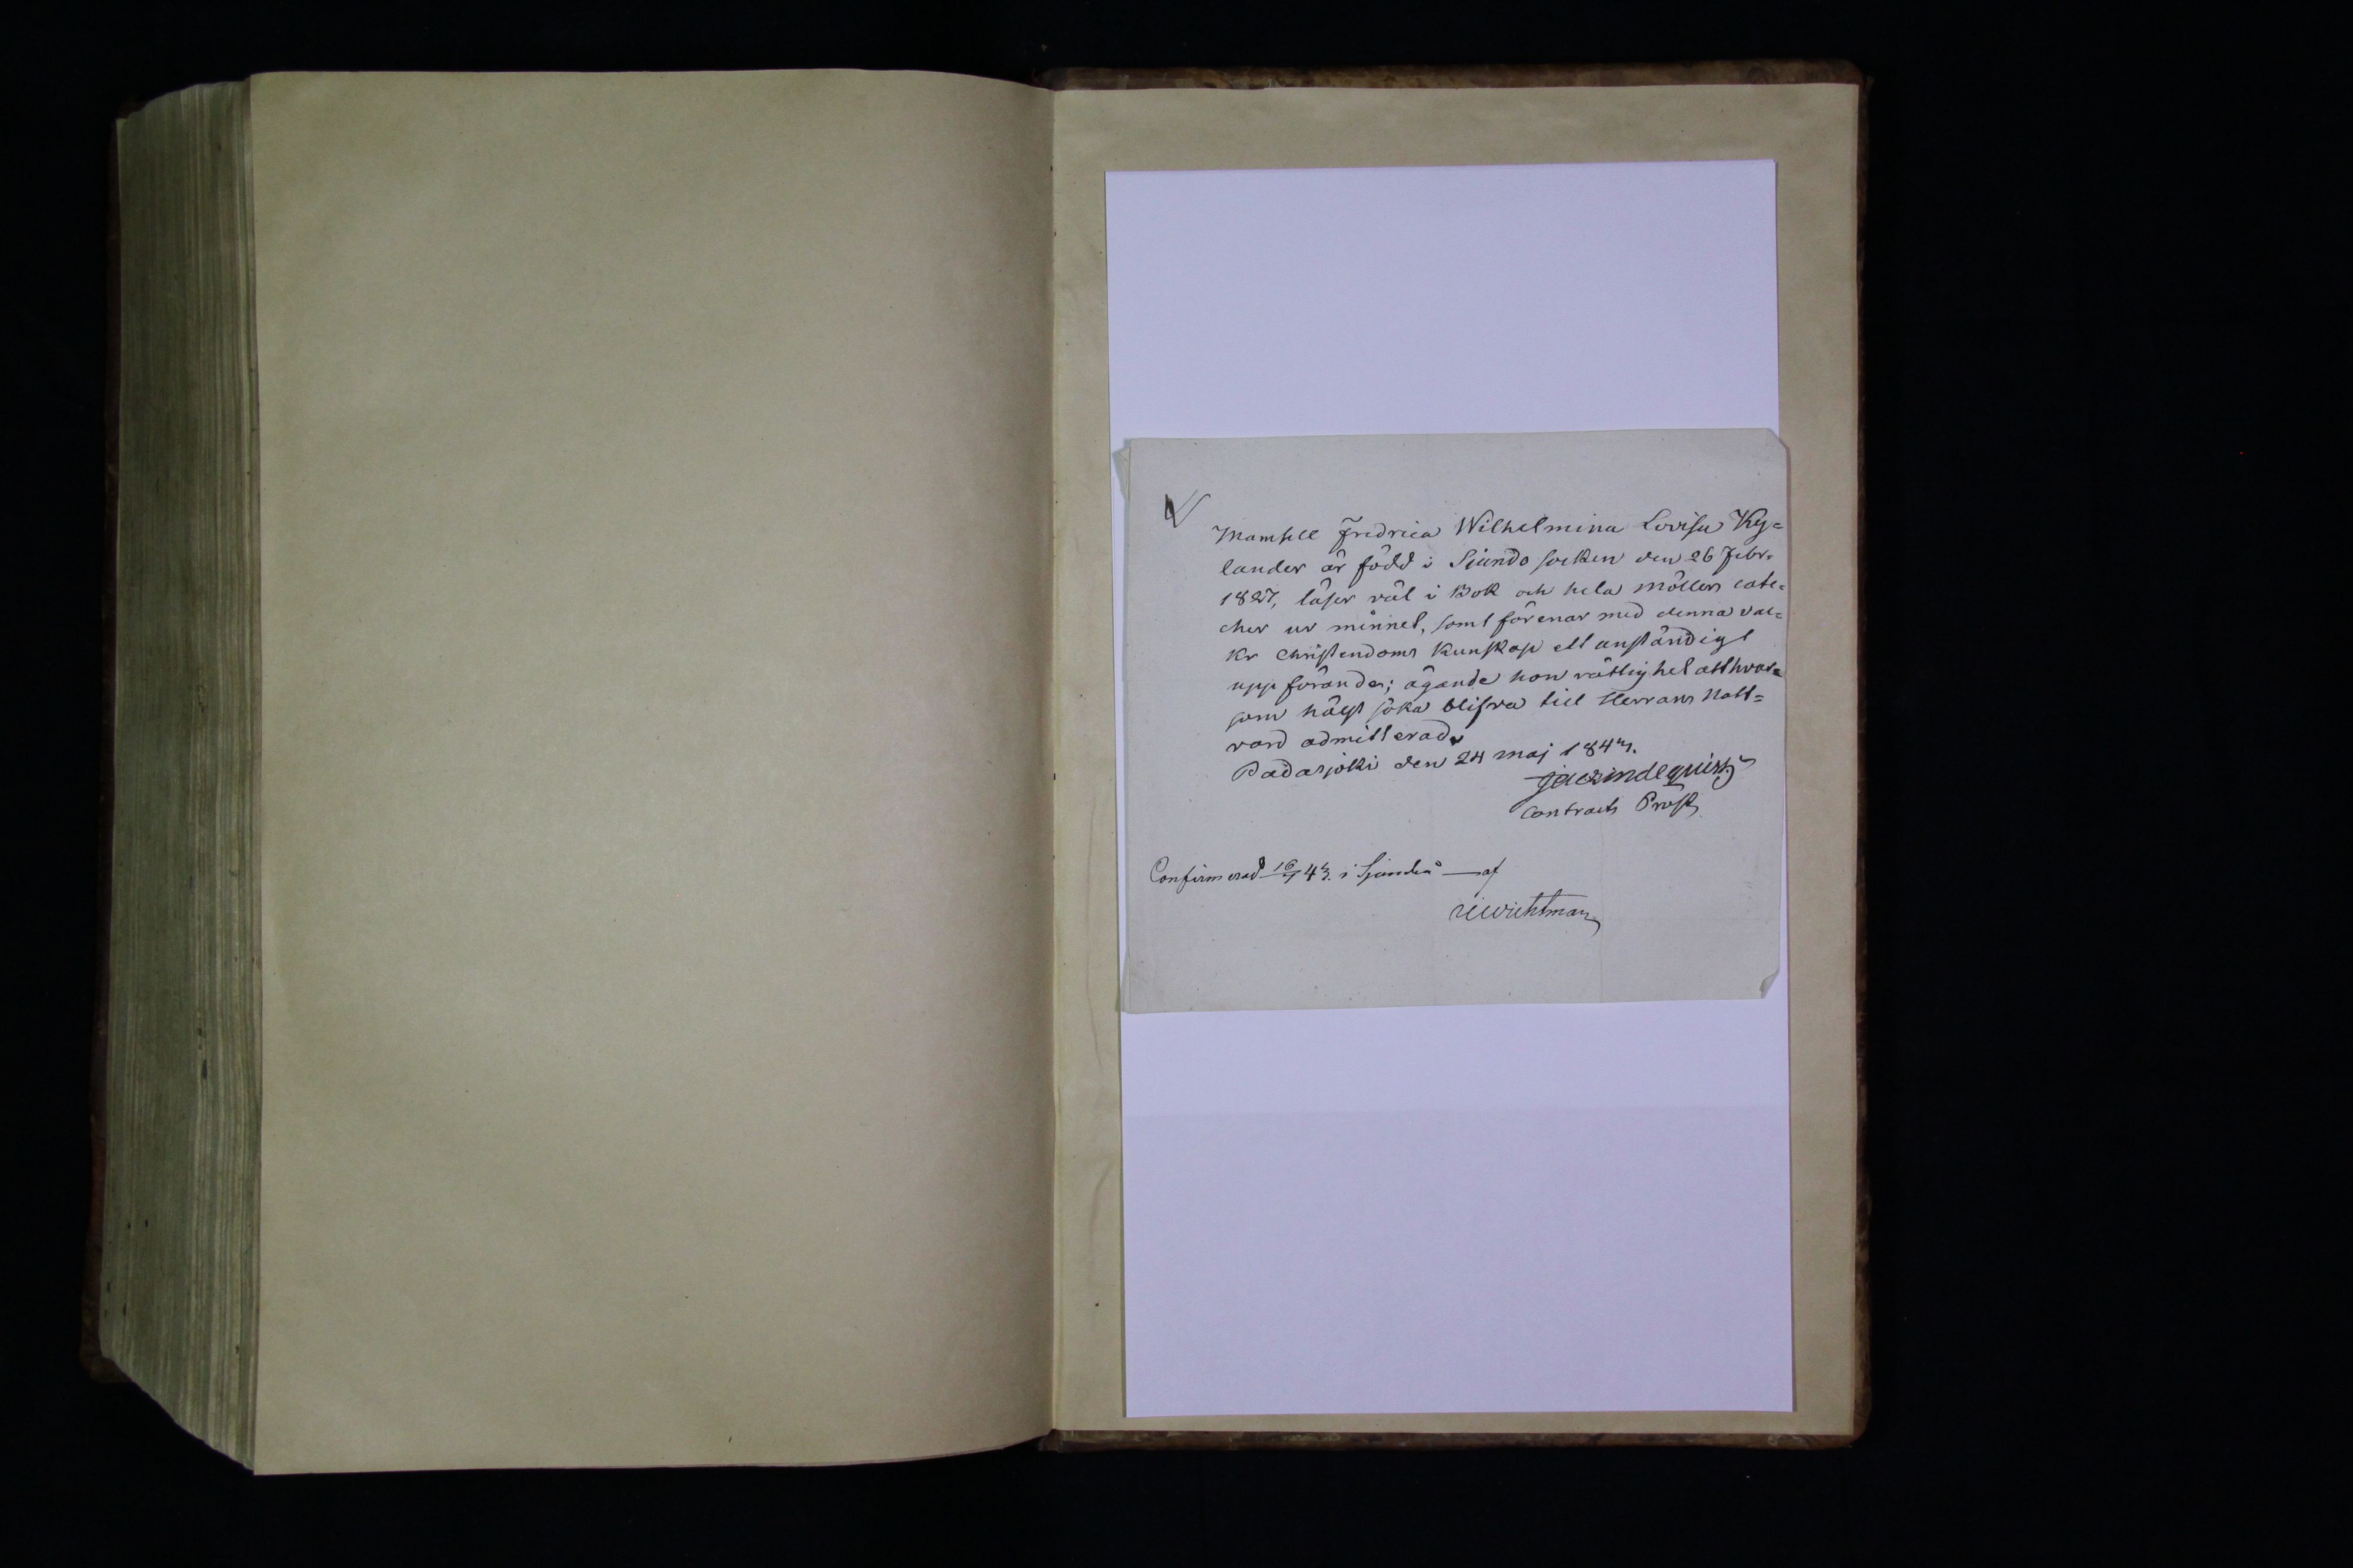 Mamsell Fredrica Wilhelmina Lovisa Ky=
lander är född i Sjundo socken den 26 Febr.
1827, läser väl i Bok och hela Möllers cate=
cher ur minnet, samt förenar med denna vac=
kr Christendoms kunskap ett anständigt
uppförande; ägande hon rättighet att hvar=
som hälst söka blifva till Herrans Natt=
vard admitterad.
Padasjoki den 24 Maj 1843.
Contracts Prost
Confirmerad 16/7 43. i Sjundeå — af
Wichtman